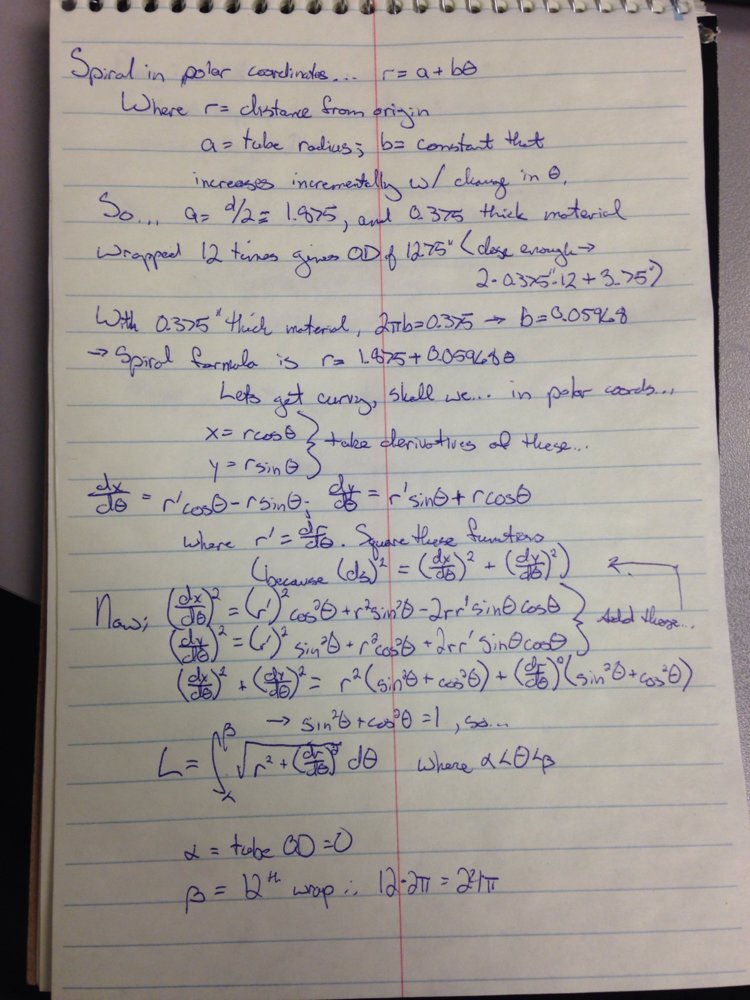 Spiral in polar coordinates... r = a + bθ
Where r = distance from origin
a = tube radius; b = constant that
increases incrementally w/ change in θ.
So... a = d/2 = 1.875, and 0.375 thick material
wrapped 12 times gives OD of 12.75" (close enough →
2·0.375"·12 + 3.75")
With 0.375" thick material, 2πb = 0.375 → b = 0.05968
→ Spiral formula is r = 1.875 + 0.05968θ
Lets get curvy, shall we... in polar coords...
x = rcosθ
y = rsinθ } take derivatives of these...
dx/dθ = r'cosθ - rsinθ; dy/dθ = r'sinθ + rcosθ
where r' = dr/dθ. Square these functions
(because (ds)² = (dx/dθ)² + (dy/dθ)²)
Now; (dx/dθ)² = (r')² cos²θ + r²sin²θ - 2rr'sinθcosθ
(dy/dθ)² = (r')² sin²θ + r²cos²θ + 2rr'sinθcosθ } Add these...
(dx/dθ)² + (dy/dθ)² = r²(sin²θ + cos²θ) + (dr/dθ)²(sin²θ + cos²θ)
→ sin²θ + cos²θ = 1, so...
L = ∫_α^β √(r² + (dr/dθ)²) dθ where α < θ < β
α = tube OD = 0
β = 12th wrap ∴ 12·2π = 24π